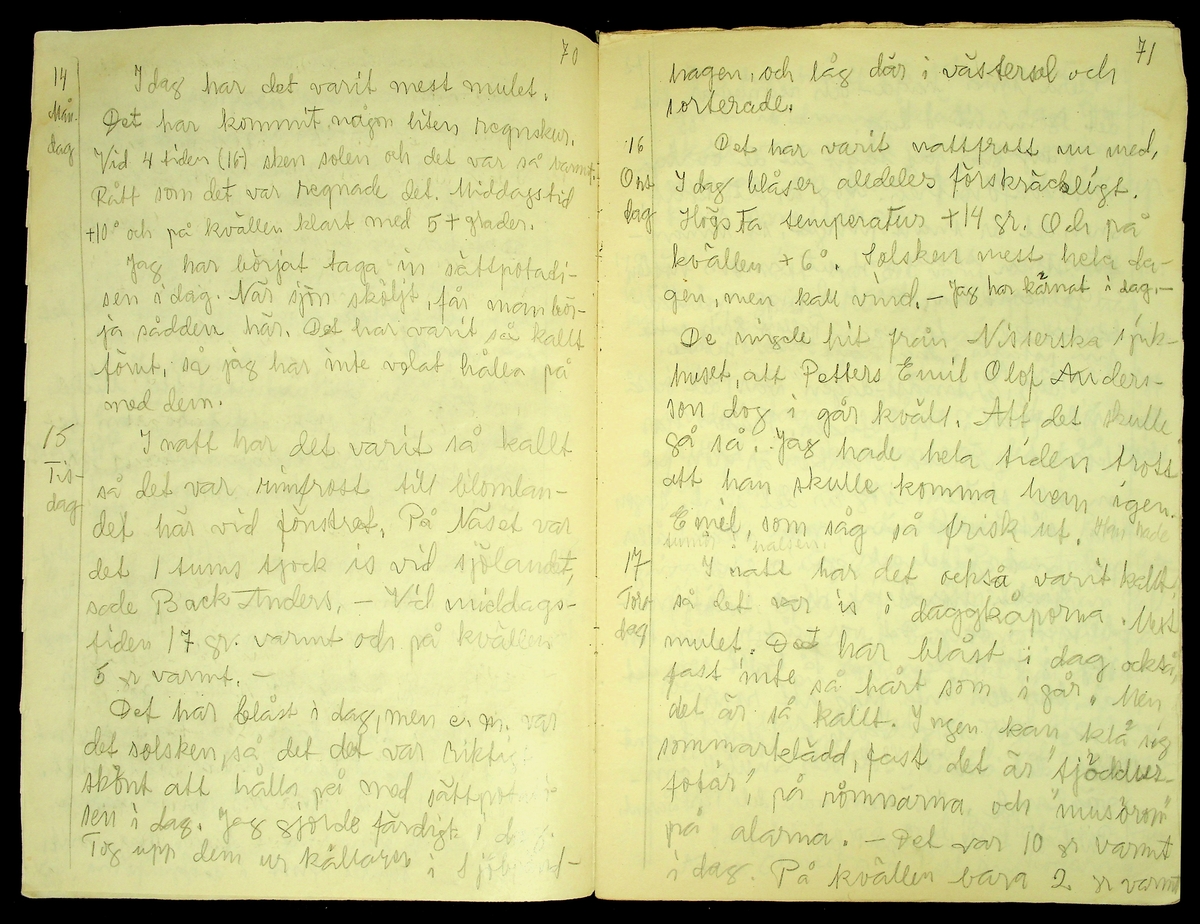 70
14
Mån-
dag
I dag har det varit mest mulet.
Det har kommit någon liten regnskur.
Vid 4 tiden (16) sken solen och det var så varmt.
Rätt som det var regnade det. Middagstid
+10° och på kvällen klart med 5+ grader.
Jag har börjat taga in sättpotadi-
sen i dag. När sjön sköljt, får man bör-
ja sådden här. Det har varit så kallt
förut, så jag har inte velat hålla på
med dem.
15
Tis-
dag
I natt har det varit så kallt
så det var rimfrost till blomlan-
det här vid fönstret. På Näset var
det 1 tums tjock is vid sjölandet,
sade Back Anders. – Vid middags-
tiden 17 gr. varmt och på kvällen
5 gr varmt. –
Det har blåst i dag, men e.m. var
det solsken, så det det var riktigt
skönt att hålla på med sättpot
sen i dag. Jag gjorde färdigt i
Tog upp dem ur källaren i
71
hagen, och låg där i västersol och
sorterade.
16
Ons
dag
Det har varit nattfrost nu med.
I dag blåser alldeles förskräckligt.
Högsta temperatur +14 gr. Och på
kvällen +6°. Solsken mest hela da-
gen, men kall vind. – Jag har kärnat i dag. –
De ringde hit från Nisserska sjuk-
huset, att Petters Emil Olof Anders-
son dog i går kväll. Att det skulle
gå så. Jag hade hela tiden trott
att han skulle komma hem igen.
Emil, som såg så frisk ut. Han hade
tumör i halsen.
17
Tors
dag
I natt har det också varit kallt,
så det var is i daggkåporna. Mest
mulet. Det har blåst i dag också,
fast inte så hårt som i går. Men
det är så kallt. Ingen kan klä sig
sommarklädd, fast det är "tjädder-
fotär", på römnarna och "musöron"
på alarna. – Det var 10 gr varmt
i dag. På kvällen bara 2 gr varmt